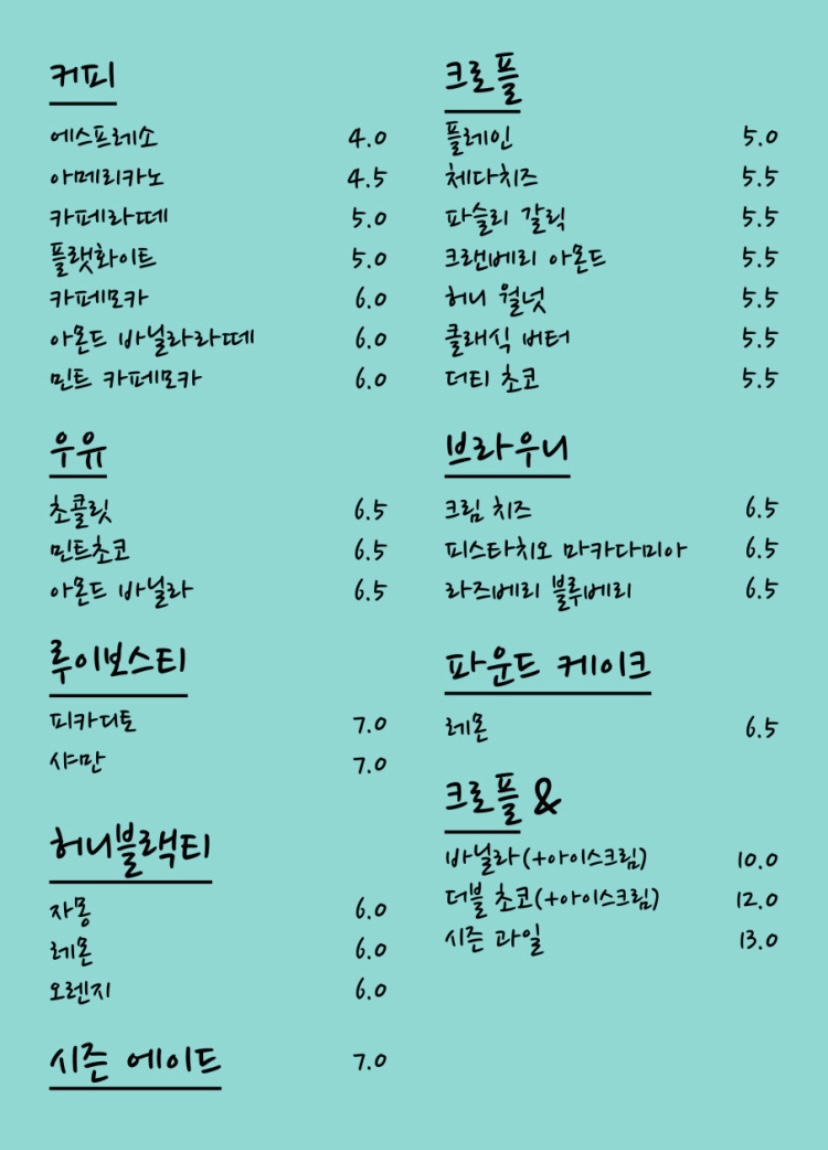 커피
에스프레소 4.0
아메리카노 4.5
카페라떼 5.0
플랫화이트 5.0
카페모카 6.0
아몬드 바닐라라떼 6.0
민트 카페모카 6.0
우유
초콜릿 6.5
민트초코 6.5
아몬드 바닐라 6.5
루이보스티
피카디토 7.0
샤만 7.0
허니블랙티
자몽 6.0
레몬 6.0
오렌지 6.0
시즌 에이드 7.0
크로플
플레인 5.0
체다치즈 5.5
파슬리 갈릭 5.5
크랜베리 아몬드 5.5
허니 월넛 5.5
클래식 버터 5.5
더티 초코 5.5
브라우니
크림 치즈 6.5
피스타치오 마카다미아 6.5
라즈베리 블루베리 6.5
파운드 케이크
레몬 6.5
크로플 &
바닐라(+아이스크림) 10.0
더블 초코(+아이스크림) 12.0
시즌 과일 13.0